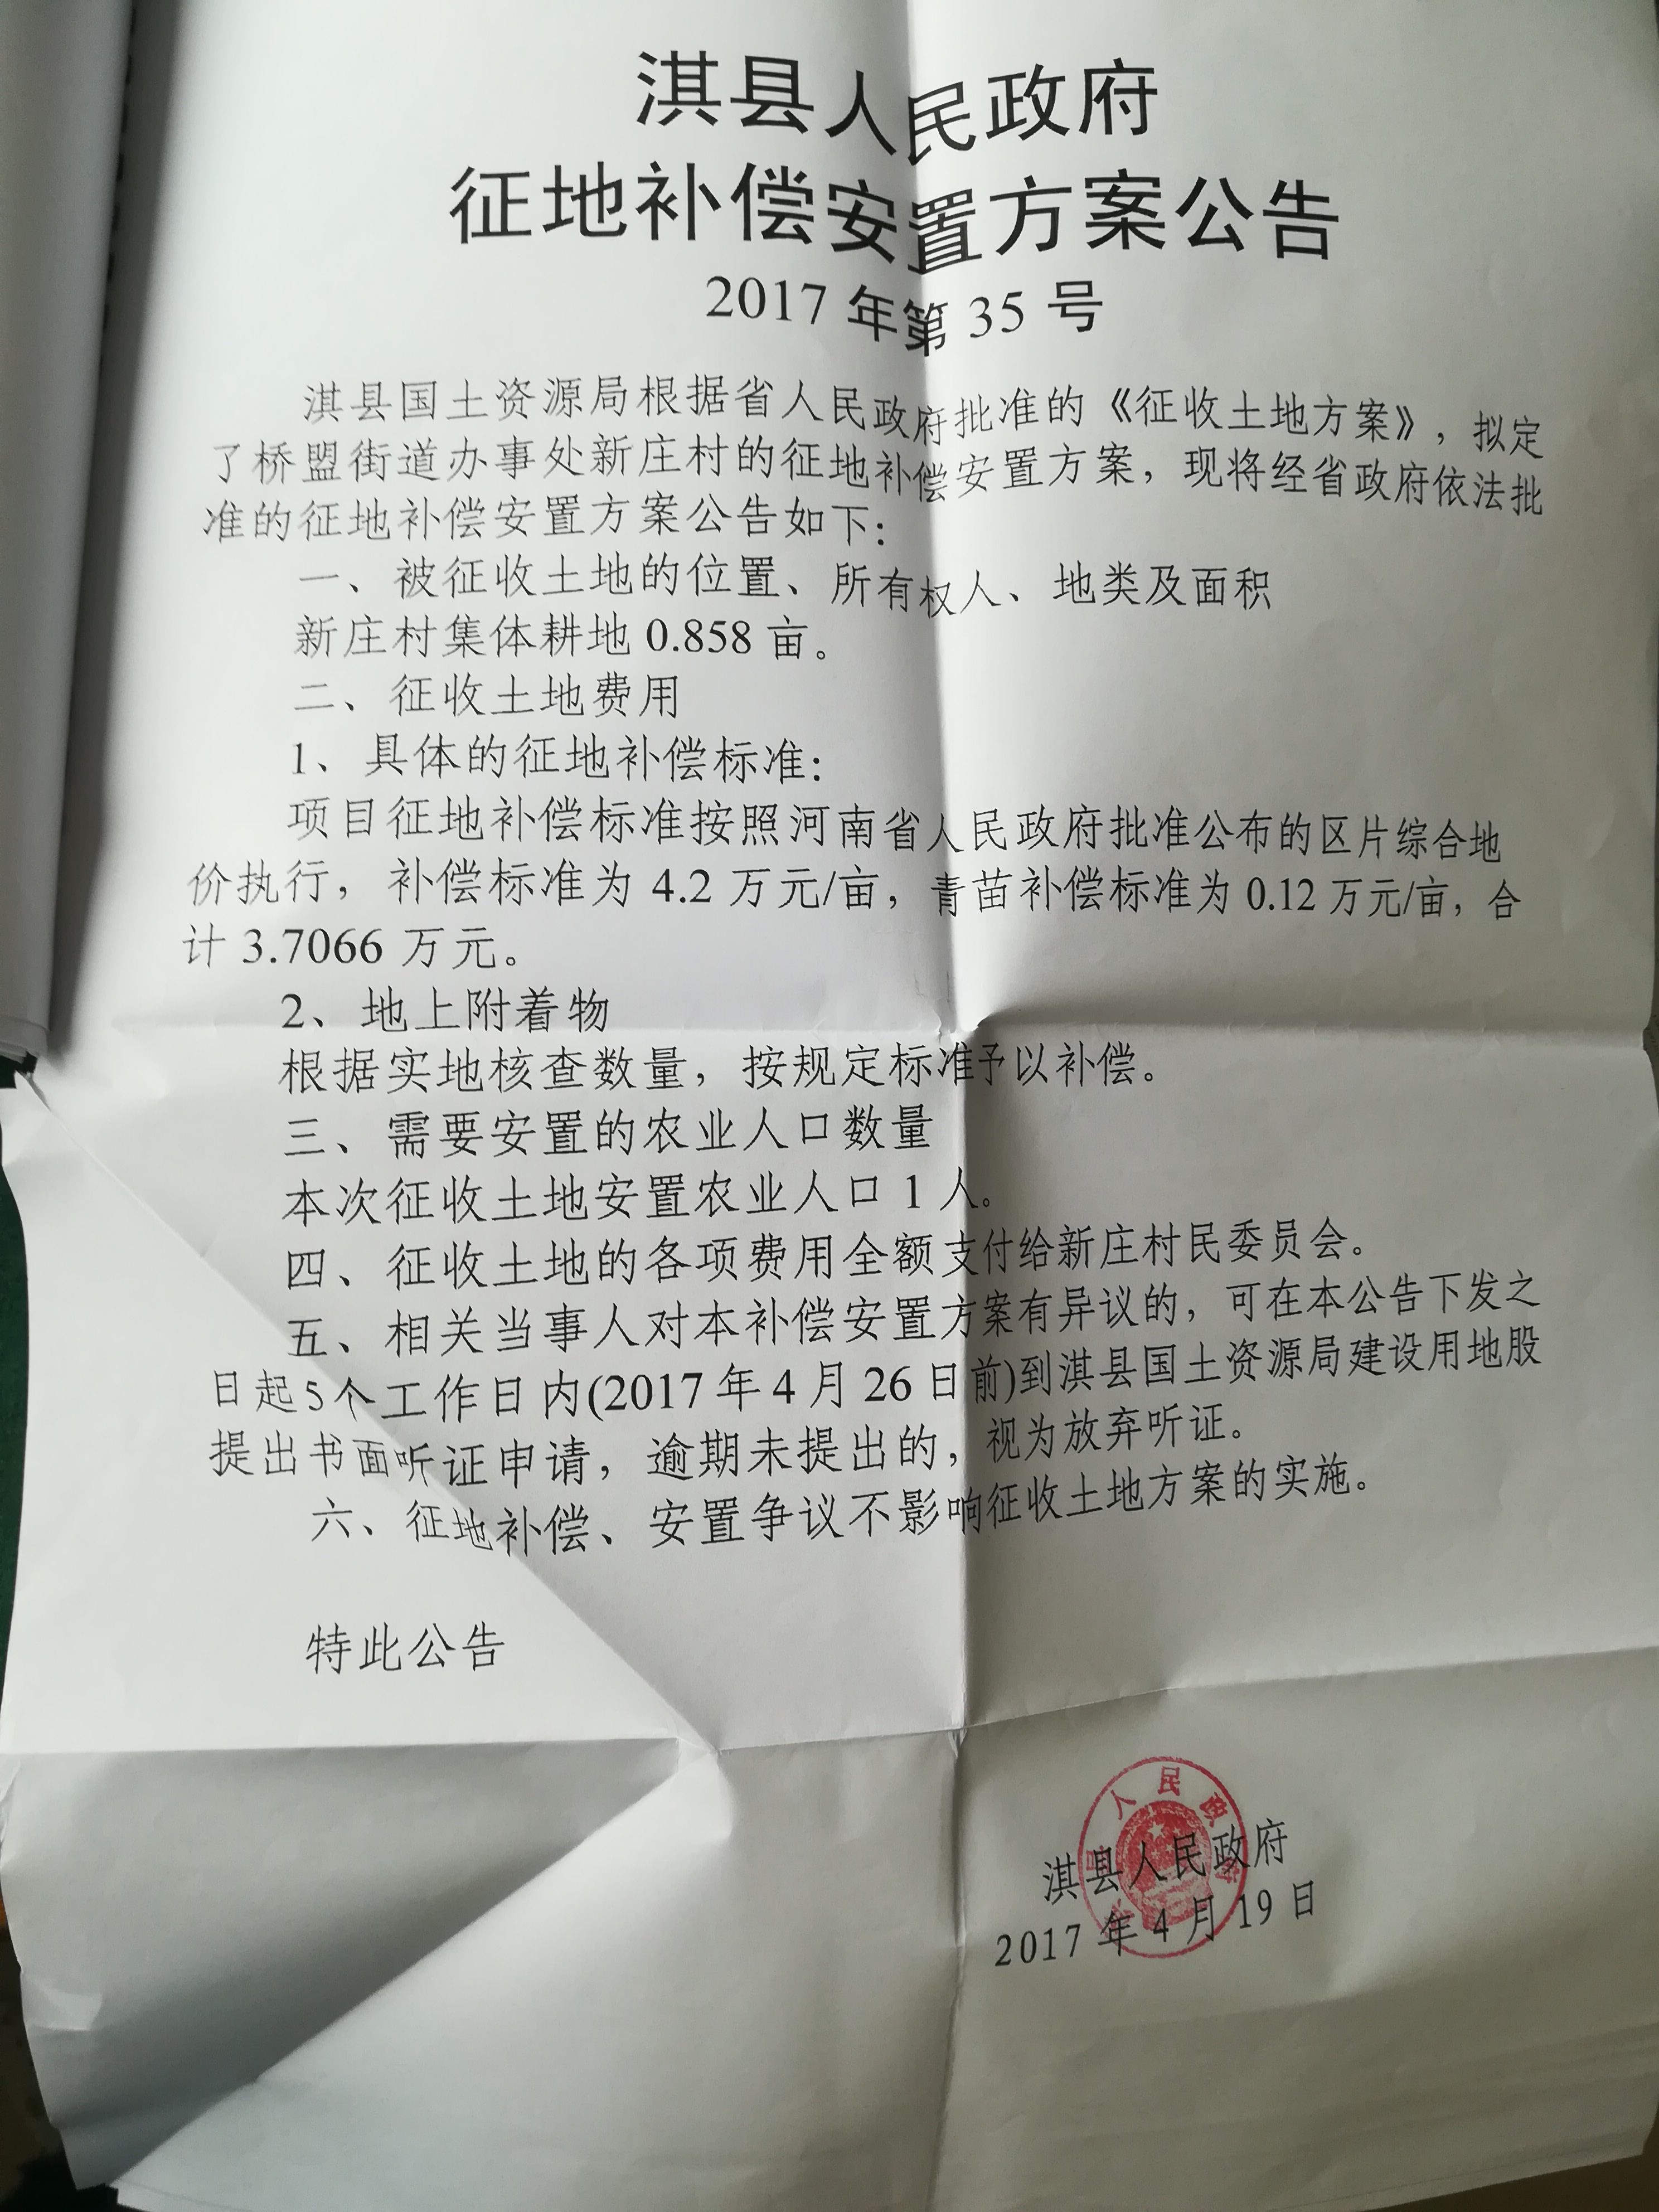 淇县人民政府
征地补偿安置方案公告
2017 年第 35 号
淇县国土资源局根据省人民政府批准的《征收土地方案》，拟定
了桥盟街道办事处新庄村的征地补偿安置方案，现将经省政府依法批
准的征地补偿安置方案公告如下：
一、被征收土地的位置、所有权人、地类及面积
新庄村集体耕地 0.858 亩。
二、征收土地费用
1、具体的征地补偿标准：
项目征地补偿标准按照河南省人民政府批准公布的区片综合地
价执行，补偿标准为 4.2 万元/亩，青苗补偿标准为 0.12 万元/亩，合
计 3.7066 万元。
2、地上附着物
根据实地核查数量，按规定标准予以补偿。
三、需要安置的农业人口数量
本次征收土地安置农业人口 1 人。
四、征收土地的各项费用全额支付给新庄村民委员会。
五、相关当事人对本补偿安置方案有异议的，可在本公告下发之
日起5个工作日内(2017 年 4 月 26 日前)到淇县国土资源局建设用地股
提出书面听证申请，逾期未提出的，视为放弃听证。
六、征地补偿、安置争议不影响征收土地方案的实施。
特此公告
淇县人民政府
2017 年 4 月 19 日